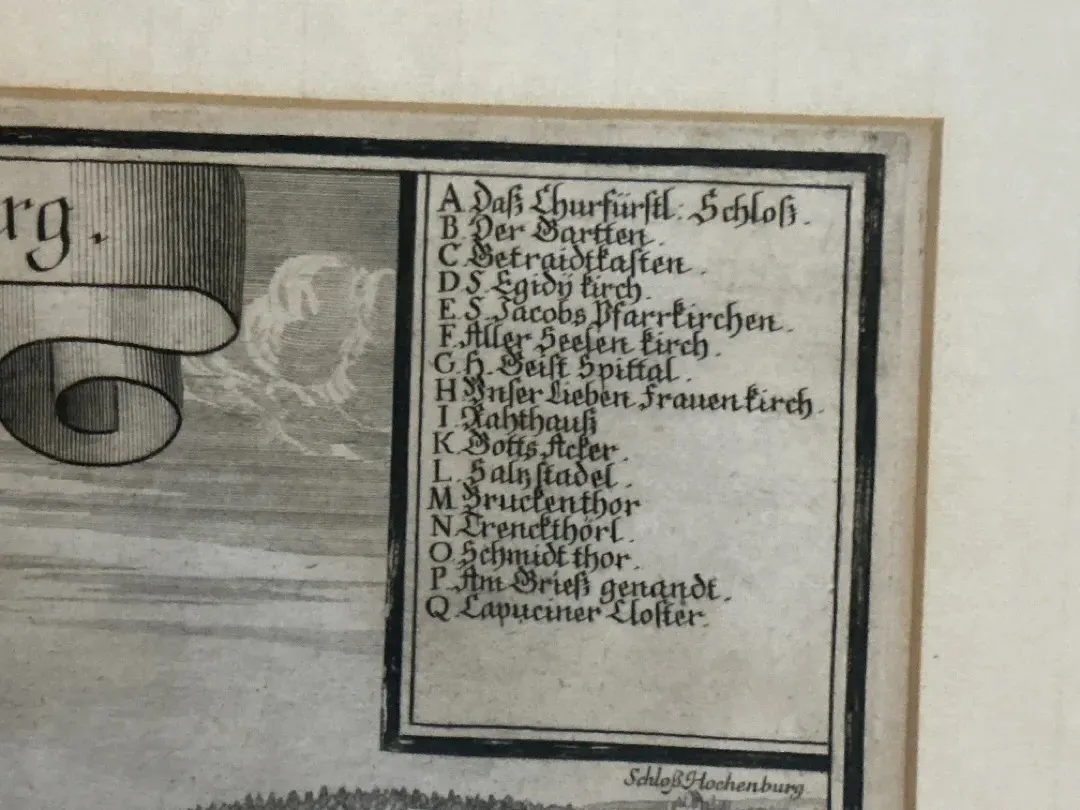 rg.
A. Daß Churfürstl: Schloß.
B. Der Gartten.
C. Getraidtkasten.
D. S. Egidÿ kirch.
E. S. Jacobs Pfarrkirchen.
F. Aller Seelen kirch.
G. H. Geist Spittal.
H. Vnser Lieben Frauen kirch.
I. Rahthauß
K. Gotts Acker.
L. Saltzstadel.
M. Bruckenthor
N. Trenckthörl.
O. Schmidt thor.
P. Am Grieß genandt.
Q. Capuciner Closter.
Schloß Hochenburg